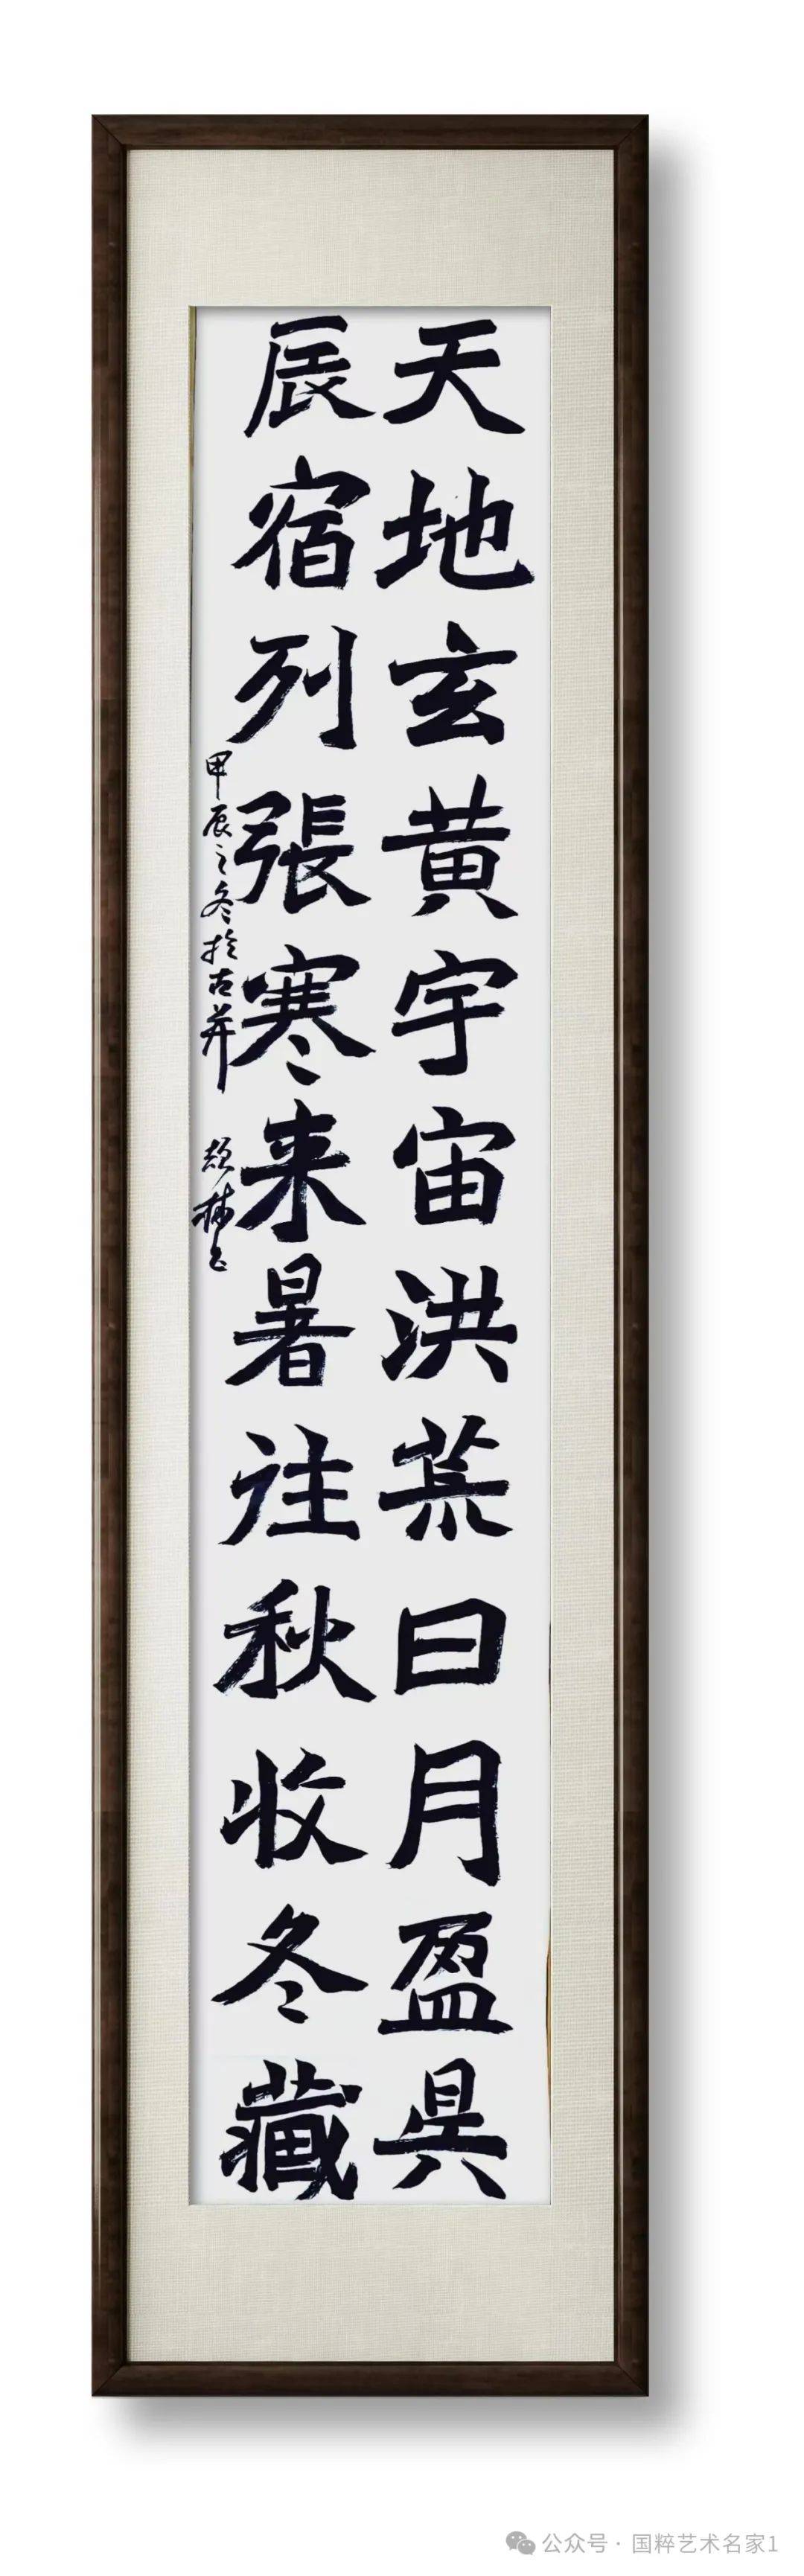 天地玄黄宇宙洪荒日月盈昃
辰宿列張寒来暑往秋收冬藏
甲辰之冬於古并
林书
公众号 · 国粹艺术名家1